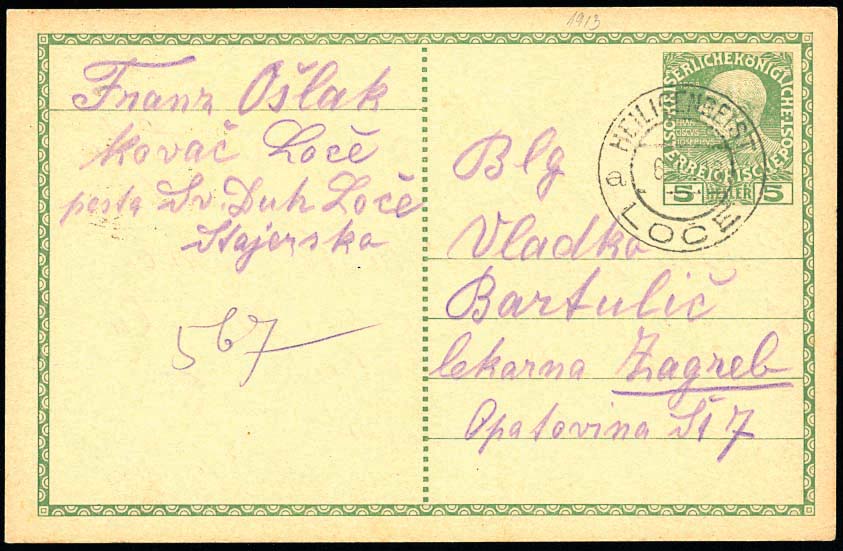 1913
Franz Ošlak
kovač Loče
pošta Sv. Duh Loče
Štajersko
567
KAISERLICHE KÖNIGLICHE
ÖSTERREICHISCHE
5 HELLER 5
HEILIGENGEIST
a
LOČE
Blg
Vladko
Bartulič
lekarna Zagreb
Opatovina Št 7